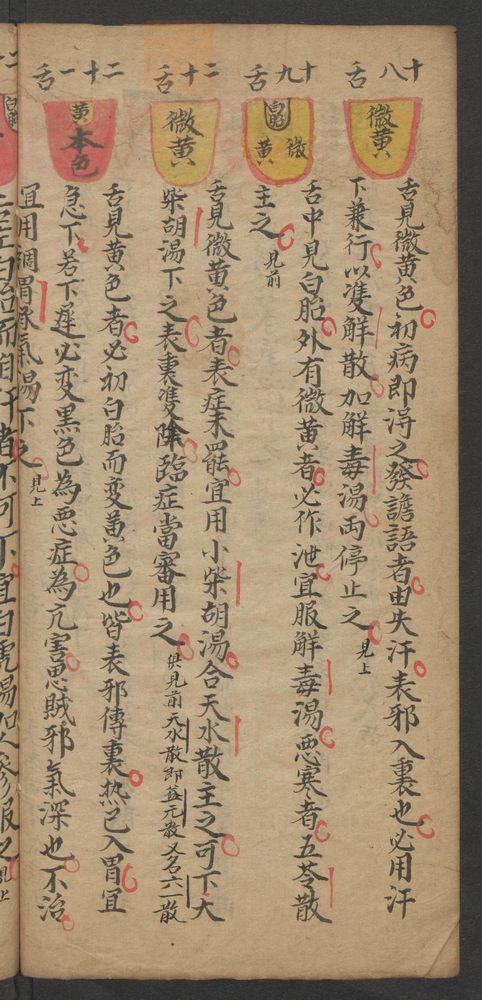 十八舌
微黄
舌見微黄色初病即淂之發譫語者由失汗表邪入裏也必用汗
下兼行以雙觧散加觧毒湯両停止之見上
十九舌
白胎
微黄
舌中見白胎外有微黄者必作泄宜服觧毒湯悪寒者五苓散
主之見前
二十舌
微黄
舌見微黄色者表症未罷宜用小柴胡湯合天水散主之可下大
柴胡湯下之表裏雙除臨症當審用之俱見前天水散即益元散又名六一散
二十一舌
黄
本色
舌見黄色者必初白胎而变黄色也皆表邪傳裏热已入胃宜
急下若下遲必变黑色為悪症為亢害悪賊邪氣深也不治
宜用調胃承氣湯下之見上